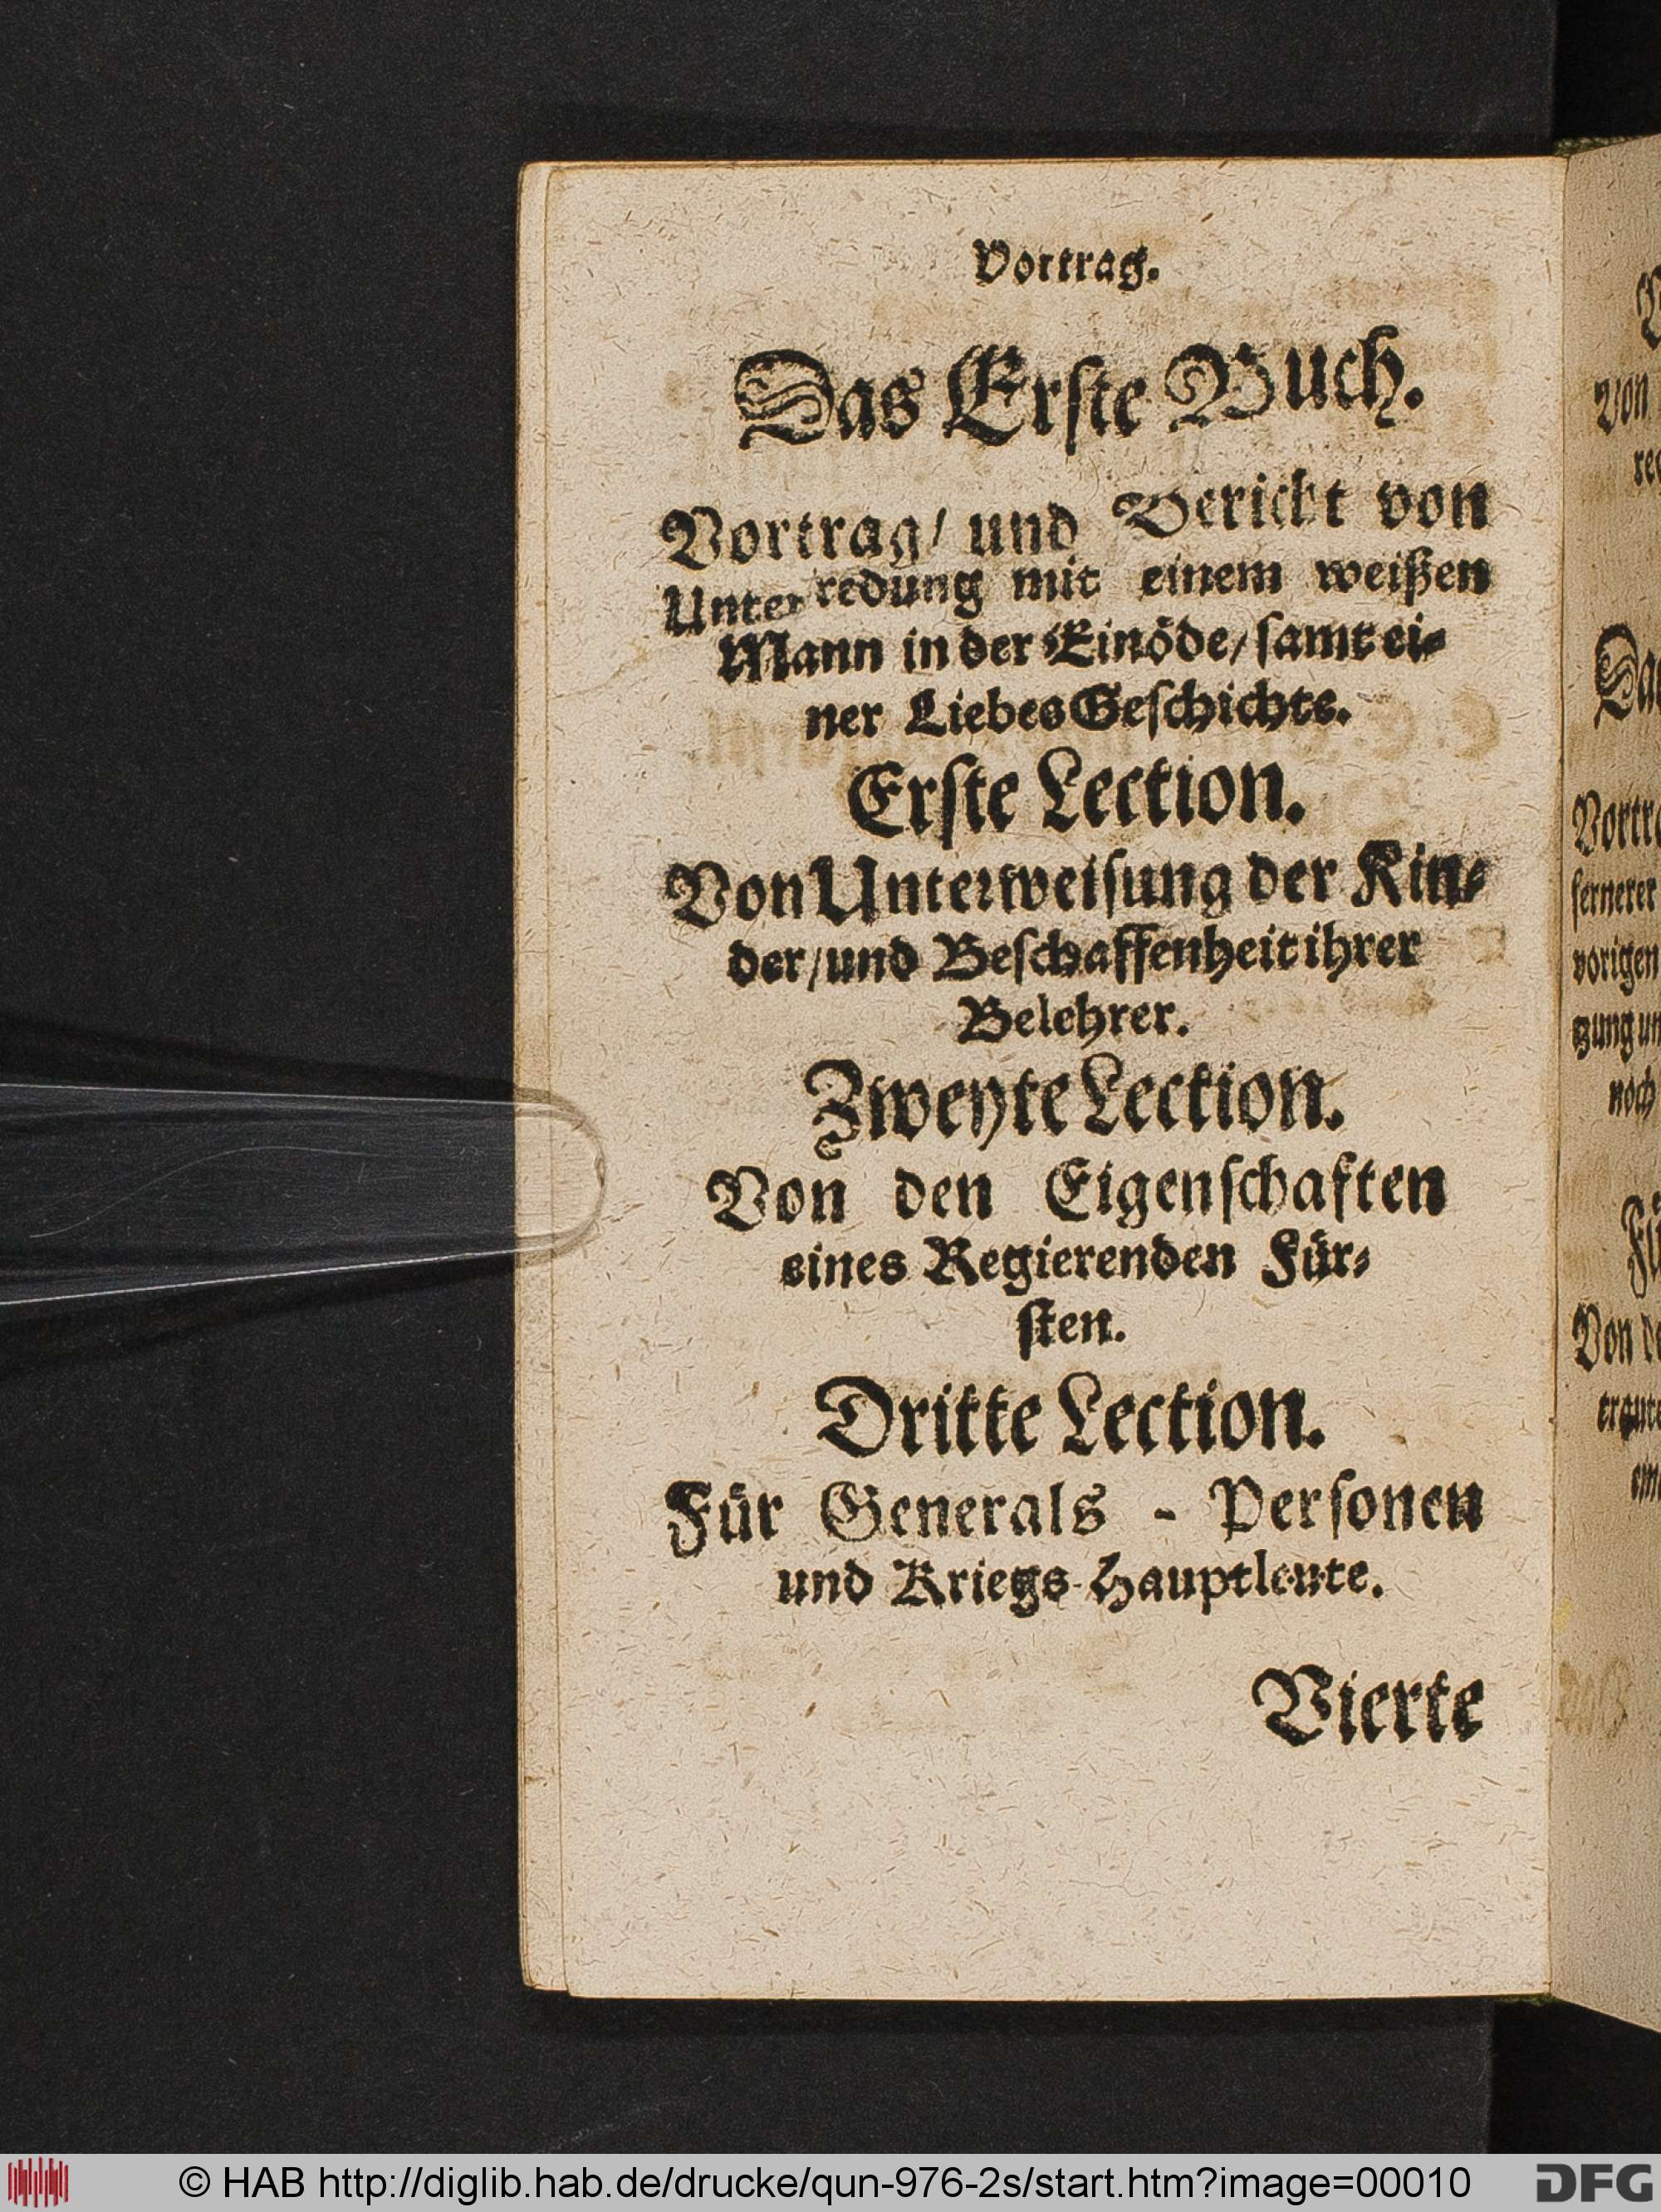 Vortrag.
Das Erſte Buch.
Vortrag/ und Bericht von
Unterredung mit einem weißen
Mann in der Einöde/ ſamt ei-
ner LiebesGeſchichte.
Erſte Lection.
Von Unterweiſung der Kin-
der/ und Beſchaffenheit ihrer
Belehrer.
Zweyte Lection.
Von den Eigenſchaften
eines Regierenden Für-
ſten.
Dritte Lection.
Für Generals - Perſonen
und Kriegs-Hauptleute.
Vierte
Von
Vortr
fernerer
vorigen
noch
Von
© HAB http://diglib.hab.de/drucke/qun-976-2s/start.htm?image=00010
DFG